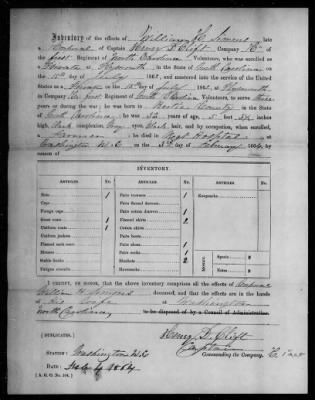 Inventory of the effects of William H. Simons late
a Corporal of Captain Henry D. Clift Company "C"
first Regiment of North Carolina Volunteers, who was enrolled
a Private at Plymouth in the State of North Carolina
on the 15th day of July 1862, and mustered into the service of the United States
as a Private on the 15th day of July 1862, at Plymouth
in Co. first Regiment of North Carolina Volunteers, to serve three
years or during the war; he was born in County in the
State of North Carolina; he was 32 years of age, 5 feet
high, Dark complexion, Gray eyes, Black hair, and by occupation, when enrolled,
a he died in Hospital at
Washington N.C. on the day of February 1864, by
reason of
INVENTORY.
ARTICLES. No. ARTICLES. No. ARTICLES. No.
Hats 1 Pairs trowsers 1 Knapsacks
Caps Pairs flannel drawers
Forage caps Pairs cotton drawers 1
Great coats 1 Flannel shirts 2
Uniform coats 1 Cotton shirts
Uniform jackets Pairs boots
Flannel sack coats Pairs shoes 1
Blouses Pairs socks
Stable frocks Blankets 2 Specie
Fatigue overalls Haversacks Notes
I CERTIFY, ON HONOR, that the above inventory comprises all the effects of Corporal
William H Simons deceased, and that the effects are in the hands
of at Washington
North Carolina, to be disposed of by a Council of Administration.
(DUPLICATES.) Henry D. Clift
Captain
Commanding the Company.
STATION: Washington N.C.
DATE: Feb 4 1864
[A. G. O. No. 104.]